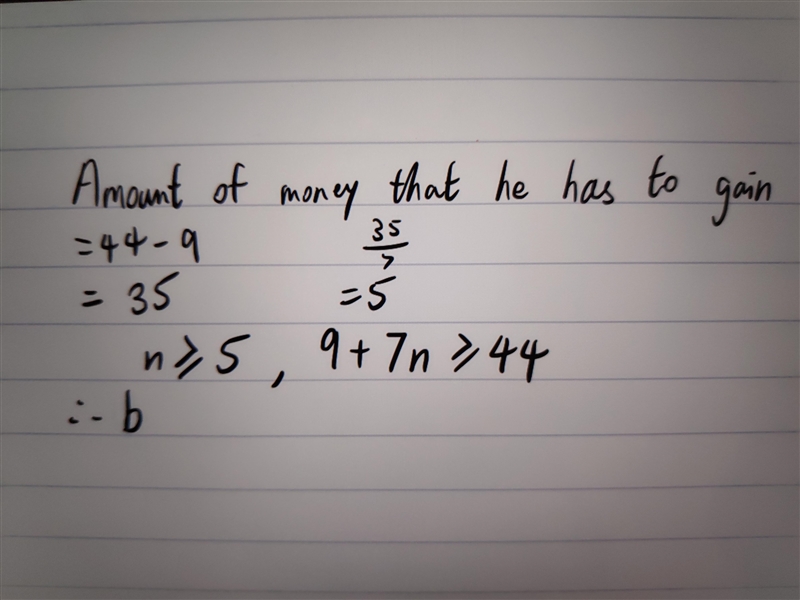 Amount of money that he has to gain
= 44 - 9
= 35
35/7
= 5
n ⩾ 5 , 9 + 7n ⩾ 44
∴ b